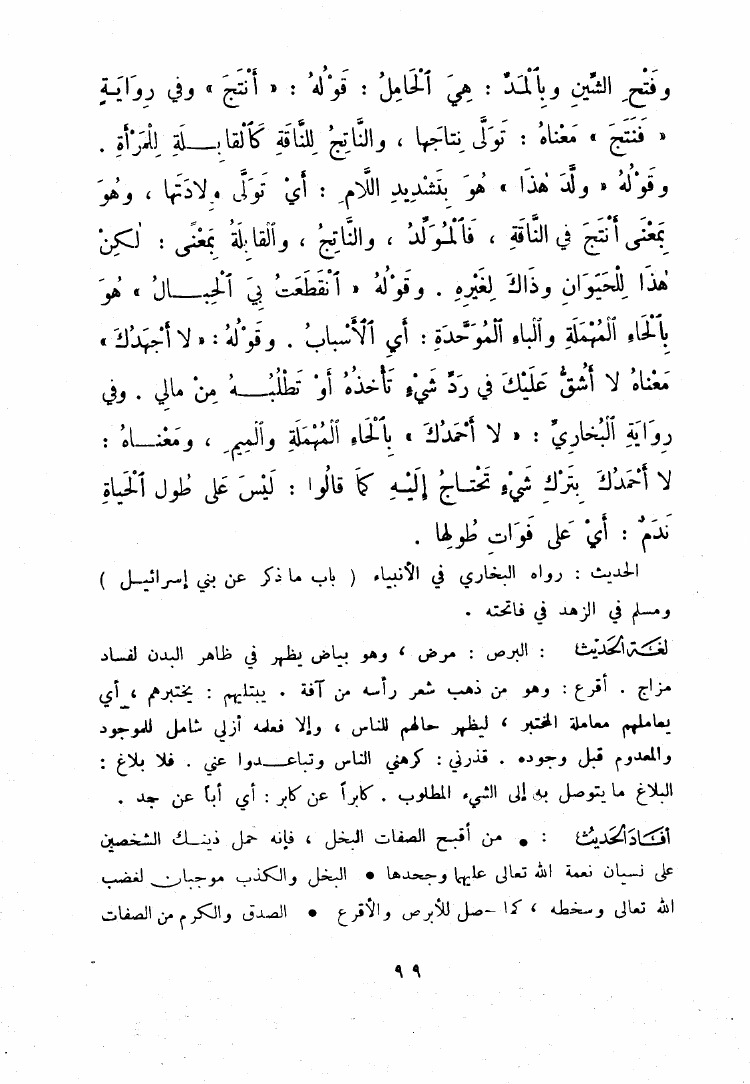 وفَتْحِ الشِّينِ وبِٱلْمَدِّ : هِيَ ٱلْحَامِلُ : قَوْلُهُ : « أَنْتَجَ » وفي رِوَايَةٍ
« فَنَتَجَ » مَعْناهُ : تَوَلَّى نِتاجَها ، والنَّاتِجُ لِلنَّاقَةِ كَٱلْقابِـلَةِ لِلْمَرْأَةِ .
وقَوْلُهُ « ولَّدَ هٰذَا » هُوَ بِتَشْدِيدِ اللَّامِ : أَيْ تَوَلَّى وِلادَتَها ، وهُوَ
بِمَعْنَى أَنْتَجَ في النَّاقَةِ ، فَٱلْمُوَلِّدُ ، والنَّاتِجُ ، وٱلْقابِلَةُ بِمَعْنًى : لٰكِنْ
هٰذَا لِلْحَيَوَانِ وذَاكَ لِغَيْرِهِ . وقَوْلُهُ « ٱنْقَطَعَتْ بِيَ ٱلْحِبـالُ » هُوَ
بِٱلْحَاءِ ٱلْمُهْمَلَةِ وٱلْباءِ ٱلْمُوَحَّدَةِ : أَيِ ٱلْأَسْبابُ . وقَوْلُهُ : « لا أَجْهَدُكَ »
مَعْنَاهُ لا أَشُقُّ عَلَيْكَ في رَدِّ شَيْءٍ تَأْخُذُهُ أَوْ تَطْلُبُـهُ مِنْ مالي . وفي
رِوَايَةِ ٱلْبُخَارِيِّ : « لا أَحْمَدُكَ » بِٱلْحَاءِ ٱلْمُهْمَلَةِ وٱلْمِيمِ ، ومَعْنـاهُ :
لا أَحْمَدُكَ بِتَرْكِ شَيْءٍ تَحْتـاجُ إِلَيْـهِ كَمَا قالُوا : لَيْسَ عَلى طُولِ ٱلْحَياةِ
نَدَمٌ : أَيْ عَلى فَوَاتِ طُولِها .
الحديث : رواه البخاري في الأنبياء ( باب ما ذكر عن بني إسرائيـل )
ومسلم في الزهد في فاتحته .
لغـة الحديث : البرص : مرض ، وهو بياض يظهر في ظاهر البدن لفساد
مزاج . أقرع : وهو من ذهب شعر رأسه من آفة . يبتليهم : يختبرهم ، أي
يعاملهم معاملة المختبر ، ليظهر حالهم للناس ، وإلا فعلمه أزلي شامل للموجود
والمعدوم قبل وجوده . قذرني : كرهني الناس وتباعـدوا عني . فلا بلاغ :
البلاغ ما يتوصل به إلى الشيء المطلوب . كابراً عن كابر : أي أباً عن جد .
أفـاد الحديث : • من أقبح الصفات البخل ، فإنه حمل ذينـك الشخصين
على نسيان نعمة الله تعالى عليها وجحدها • البخل والكذب موجبان لغضب
الله تعالى وسخطه ، كما حصل للأبرص والأقرع • الصدق والكرم من الصفات
٩٩